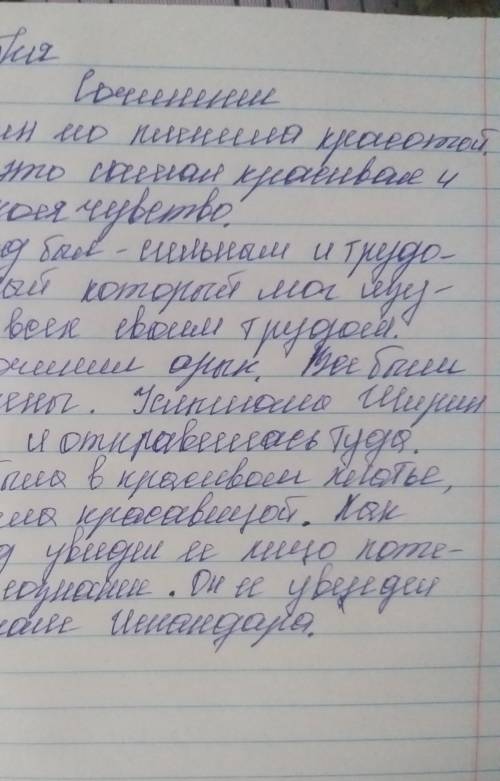 Сочинении
но пленила красотой.
это самая красивая и
чувство.
был - сильным и трудо-
который мог изу-
всех своим трудом.
арык. Все были
Услышала Ширин
и отправилась туда.
в красивом платье,
красавицой. Как
увидел ее лицо поте-
сознание. Он ее увидел
Искандара.